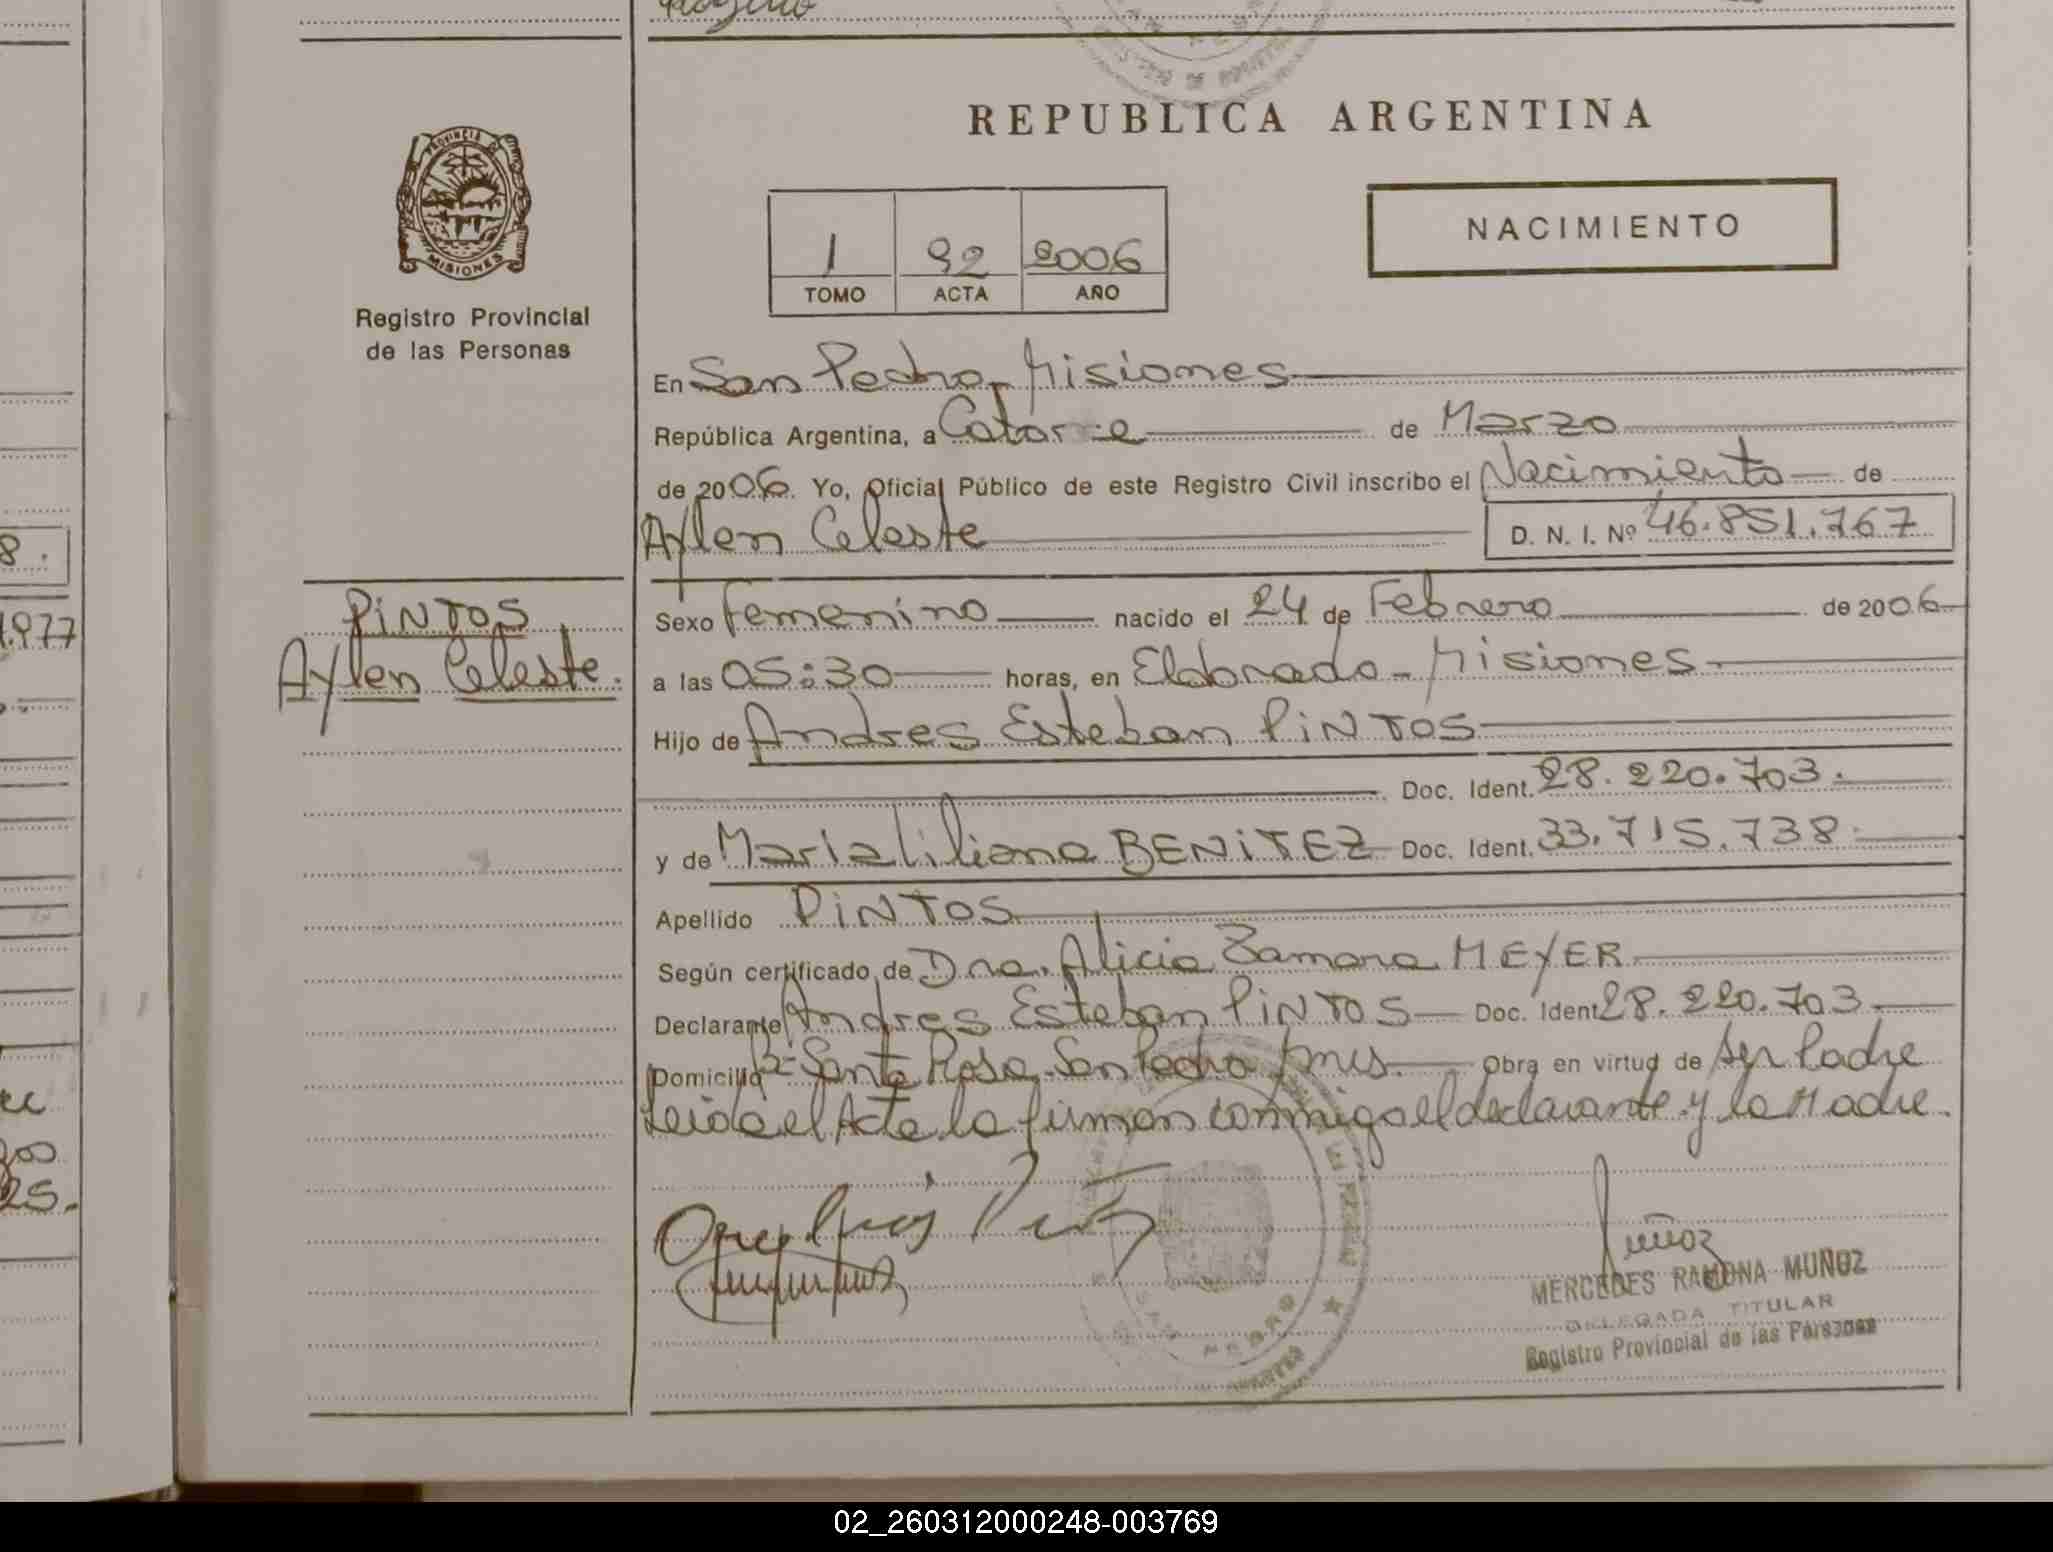 REPUBLICA ARGENTINA
PROVINCIA DE
MISIONES
Registro Provincial
de las Personas
1 92 2006
TOMO ACTA AÑO
NACIMIENTO
En San Pedro, Misiones
República Argentina, a Catorce de Marzo
de 2006. Yo, Oficial Público de este Registro Civil inscribo el Nacimiento de
Aylen Celeste D. N. I. Nº 46.851.767
PINTOS
Aylen Celeste.
Sexo Femenino nacido el 24 de Febrero de 2006
a las 05:30 horas, en Eldorado - Misiones
Hijo de Andres Esteban PINTOS
Doc. Ident. 28.220.703.
y de Maria Liliana BENITEZ Doc. Ident. 33.715.738.
Apellido PINTOS
Según certificado de Dra. Alicia Zamara MEYER
Declarante Andres Esteban PINTOS Doc. Ident 28.220.703.
Domicilio Bº Santa Rosa - San Pedro, Mnes. Obra en virtud de ser Padre
Leida el Acta la firman conmigo el declarante y la Madre.
Muñoz
MERCEDES RAMONA MUÑOZ
DELEGADA TITULAR
Registro Provincial de las Personas
SAN PEDRO
8.
1.977
25.
02_260312000248-003769